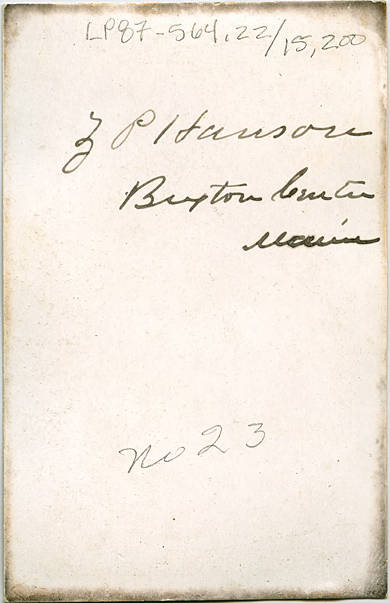 LP87-564.22/15,200
Z P Hanson
Buxton Center
Maine
No 23